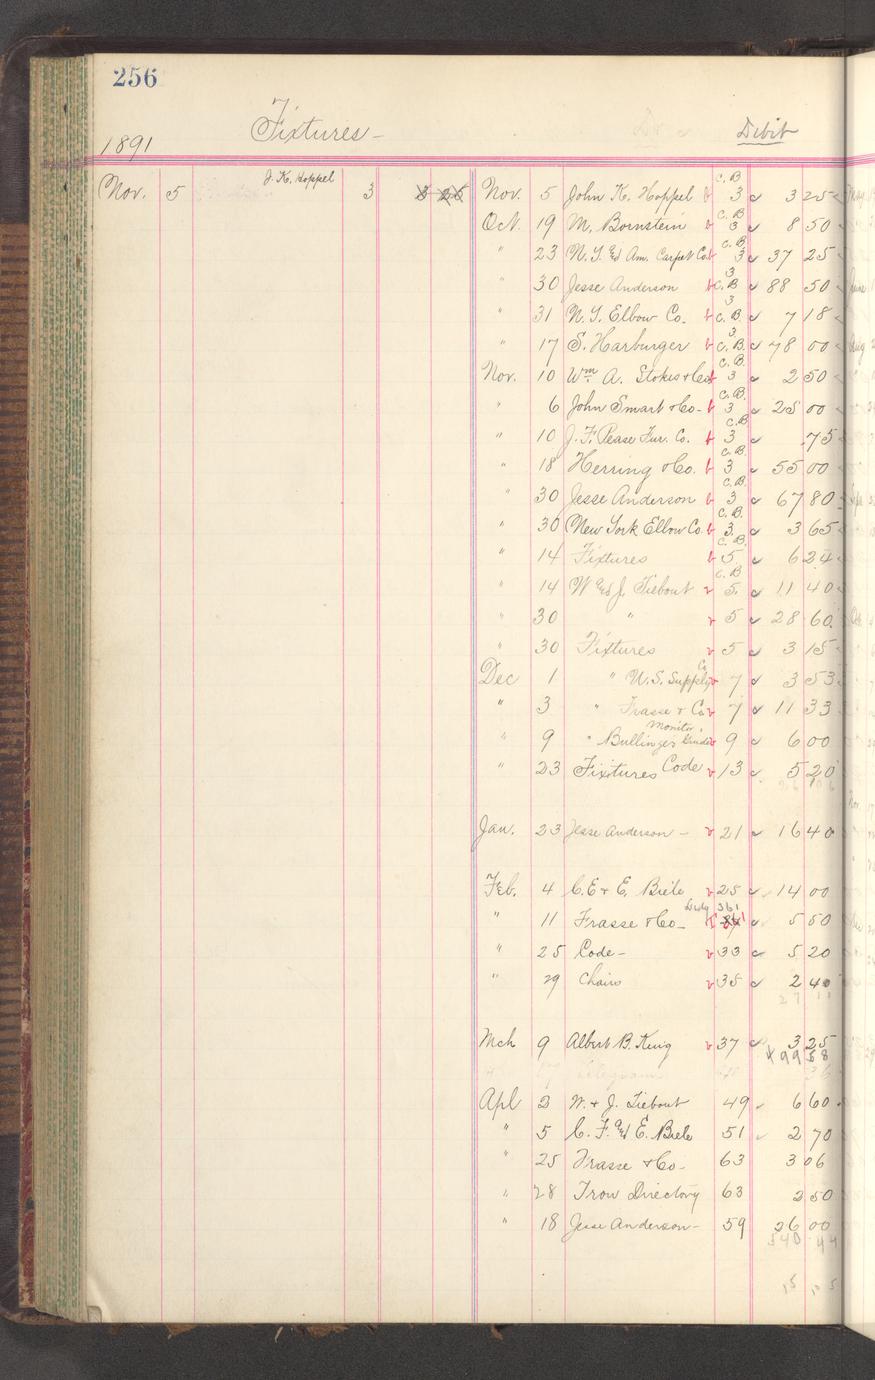 256
Fixtures -
1891
Debit
Nov. 5 J. K. Hoppel 3 3 25
Nov. 5 John K. Hoppel C.B 3 3 25
Oct. 19 M. Bornstein C.B 3 8 50
" 23 N.Y. & Am. Carpet Co. C.B 3 37 25
" 30 Jesse Anderson 3 C.B 88 50
" 31 N.Y. Elbow Co. 3 C.B 7 18
" 17 S. Harburger 3 C.B. 78 00
Nov. 10 Wm A. Stokes & Co C.B. 3 2 50
" 6 John Smart & Co - C.B. 3 25 00
" 10 J. F. Pease Fur. Co. C.B 3 .75
" 18 Herring & Co. C.B. 3 55 00
" 30 Jesse Anderson C.B. 3 67 80
" 30 New York Elbow Co. C.B. 3 3 65
" 14 Fixtures C.B. 5 6 24
" 14 W & J. Tiebout C.B 5 11 40
" 30 " 5 28 60
" 30 Fixtures 5 3 15
Dec 1 " U.S. Supply Co 7 3 53
" 3 " Frasse & Co 7 11 33
" 9 " Bullinger's Monitor Guide 9 6 00
" 23 Fixtures Code 13 5 20
Jan. 23 Jesse Anderson - 21 16 40
Feb. 4 C. E & E. Biele 25 14 00
" 11 Frasse & Co - 361 5 50
" 25 Code - 33 5 20
" 29 Chairs 35 2 40
27 11
Mch 9 Albert B. King 37 3 25
499 58
Apl 2 W. & J. Tiebout 49 6 60
" 5 C. F. & E. Biele 51 2 70
" 25 Frasse & Co - 63 3 06
" 28 Trow Directory 63 2 50
" 18 Jesse Anderson - 59 26 00
540 44